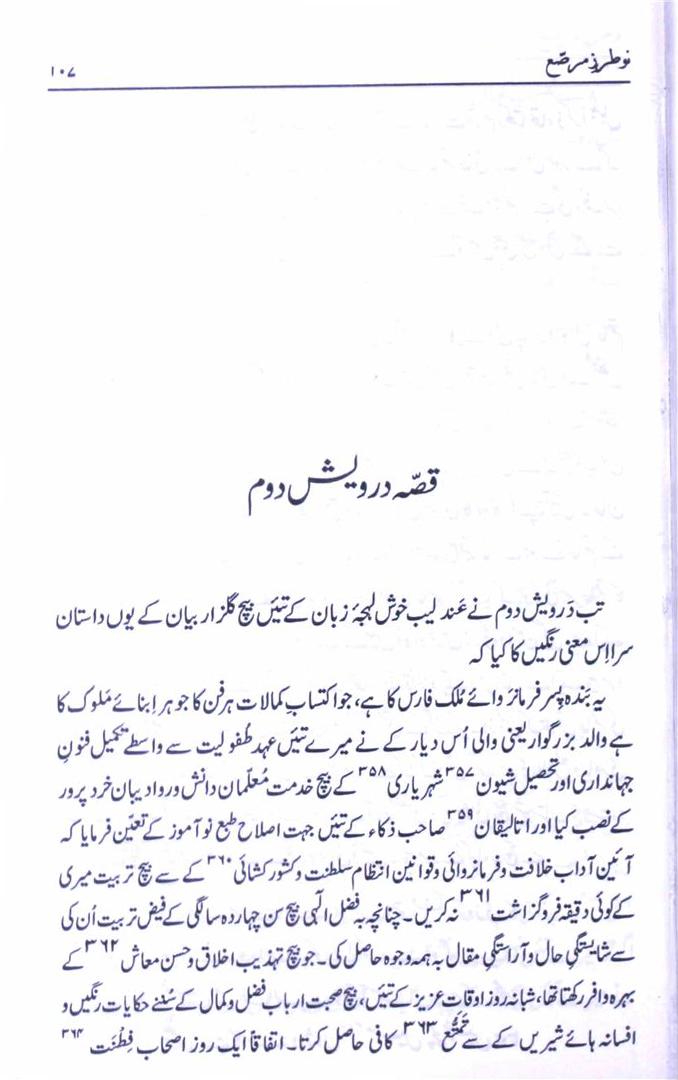 نو طرزِ مرصّع
۱۰۷
قصّہ درویش دوم
تب دَرویش دوم نے عَندلیب خوش لہجۂ زبان کے تئیں بیچ گلزار بیان کے یوں داستان
سرا اِس معنی رنگیں کا کیا کہ
یہ بَندہ پسر فرمانروائے مُلک فارس کا ہے، جو اکتسابِ کمالات ہر فن کا جوہر اِبنائے مَلوک کا
ہے والد بزرگوار یعنی والی اُس دیار کے نے میرے تئیں عہد طُفولیت سے واسطے تکمیل فنونِ
جہانداری اور تحصیل شیون ۳۵۷ شہریاری ۳۵۸ کے بیچ خدمت مُعلّمان دانش ور و ادیبان خرد پرور
کے نصب کیا اور اتالیقان ۳۵۹ صاحب ذکاء کے تئیں جہت اصلاح طبع نو آموز کے تعیّن فرمایا کہ
آئین آداب خلافت و فرمانروائی و قوانین انتظام سلطنت و کشور کشائی ۳۶۰ کے سے بیچ تربیت میری
کے کوئی دقیقہ فروگزاشت ۳۶۱ نہ کریں۔ چنانچہ بہ فضل الٰہی بیچ سن چہاردہ سالگی کے فیض تربیت اُن کی
سے شایستگیِ حال و آراستگیِ مقال بہ ہمہ وجوہ حاصل کی۔ جو بیچ تہذیب اخلاق و حسن معاش ۳۶۲ کے
بہرہ وافر رکھتا تھا، شبانہ روز اوقات عزیز کے تئیں، بیچ صحبت ارباب فضل و کمال کے سُننے حکایات رنگیں و
افسانہ ہائے شیریں کے سے تَمتُّع ۳۶۳ کافی حاصل کرتا۔ اتفاقاً ایک روز اصحاب فِطْنَت ۳۶۴